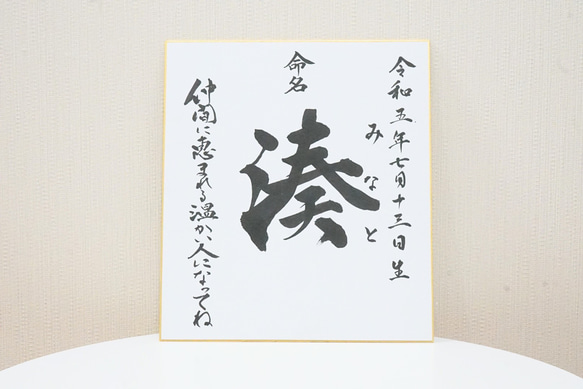 令和五年七月十三日生
みなと
命名
湊
仲間に恵まれる温かい人になってね